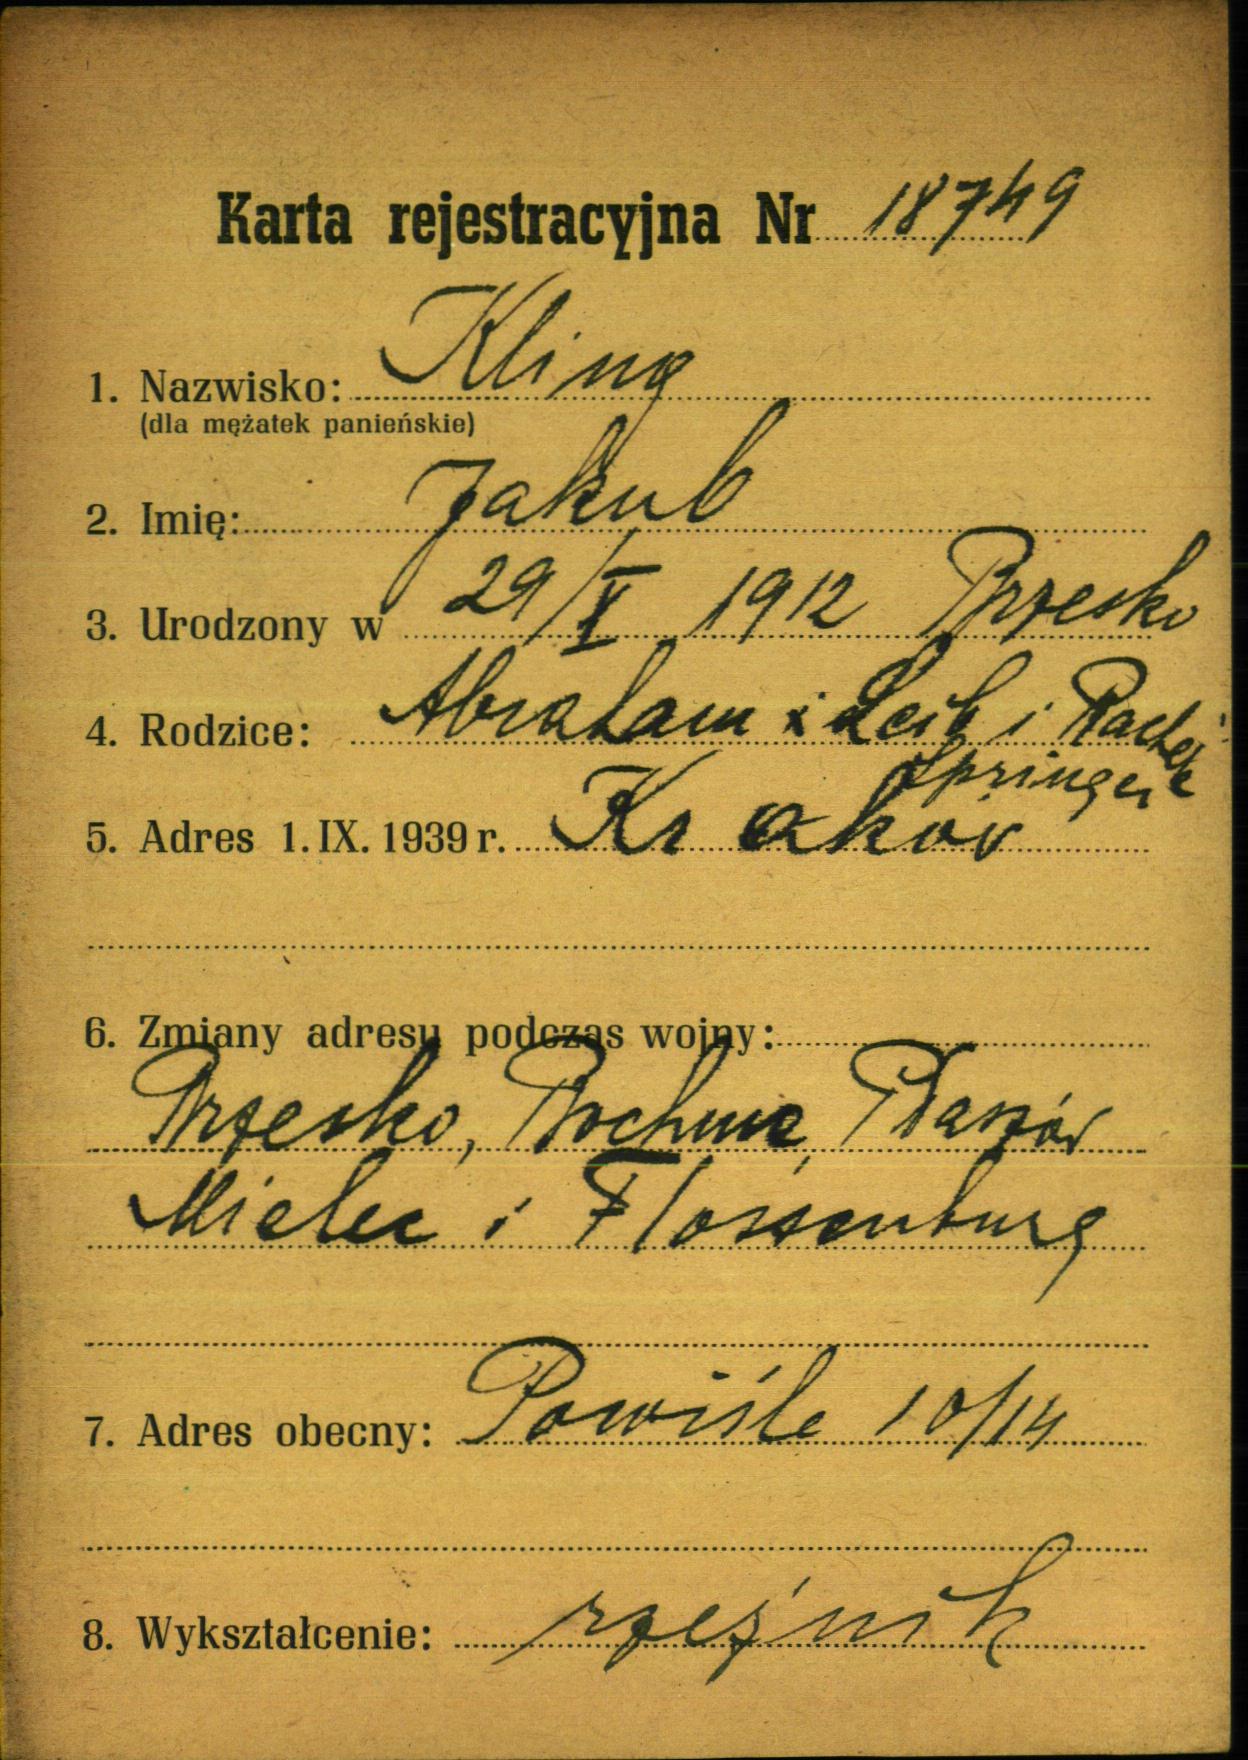 Karta rejestracyjna Nr 18749
1. Nazwisko: Kling
(dla mężatek panieńskie)
2. Imię: Jakub
3. Urodzony w 29/V 1912 Brzesko
4. Rodzice: Abraham i Leib i Rachela
Springer
5. Adres 1. IX. 1939 r. Kraków
6. Zmiany adresu podczas wojny:
Brzesko, Bochnia, Płaszów
Mielec i Flossenburg
7. Adres obecny: Powiśle 10/14
8. Wykształcenie: rzeźnik